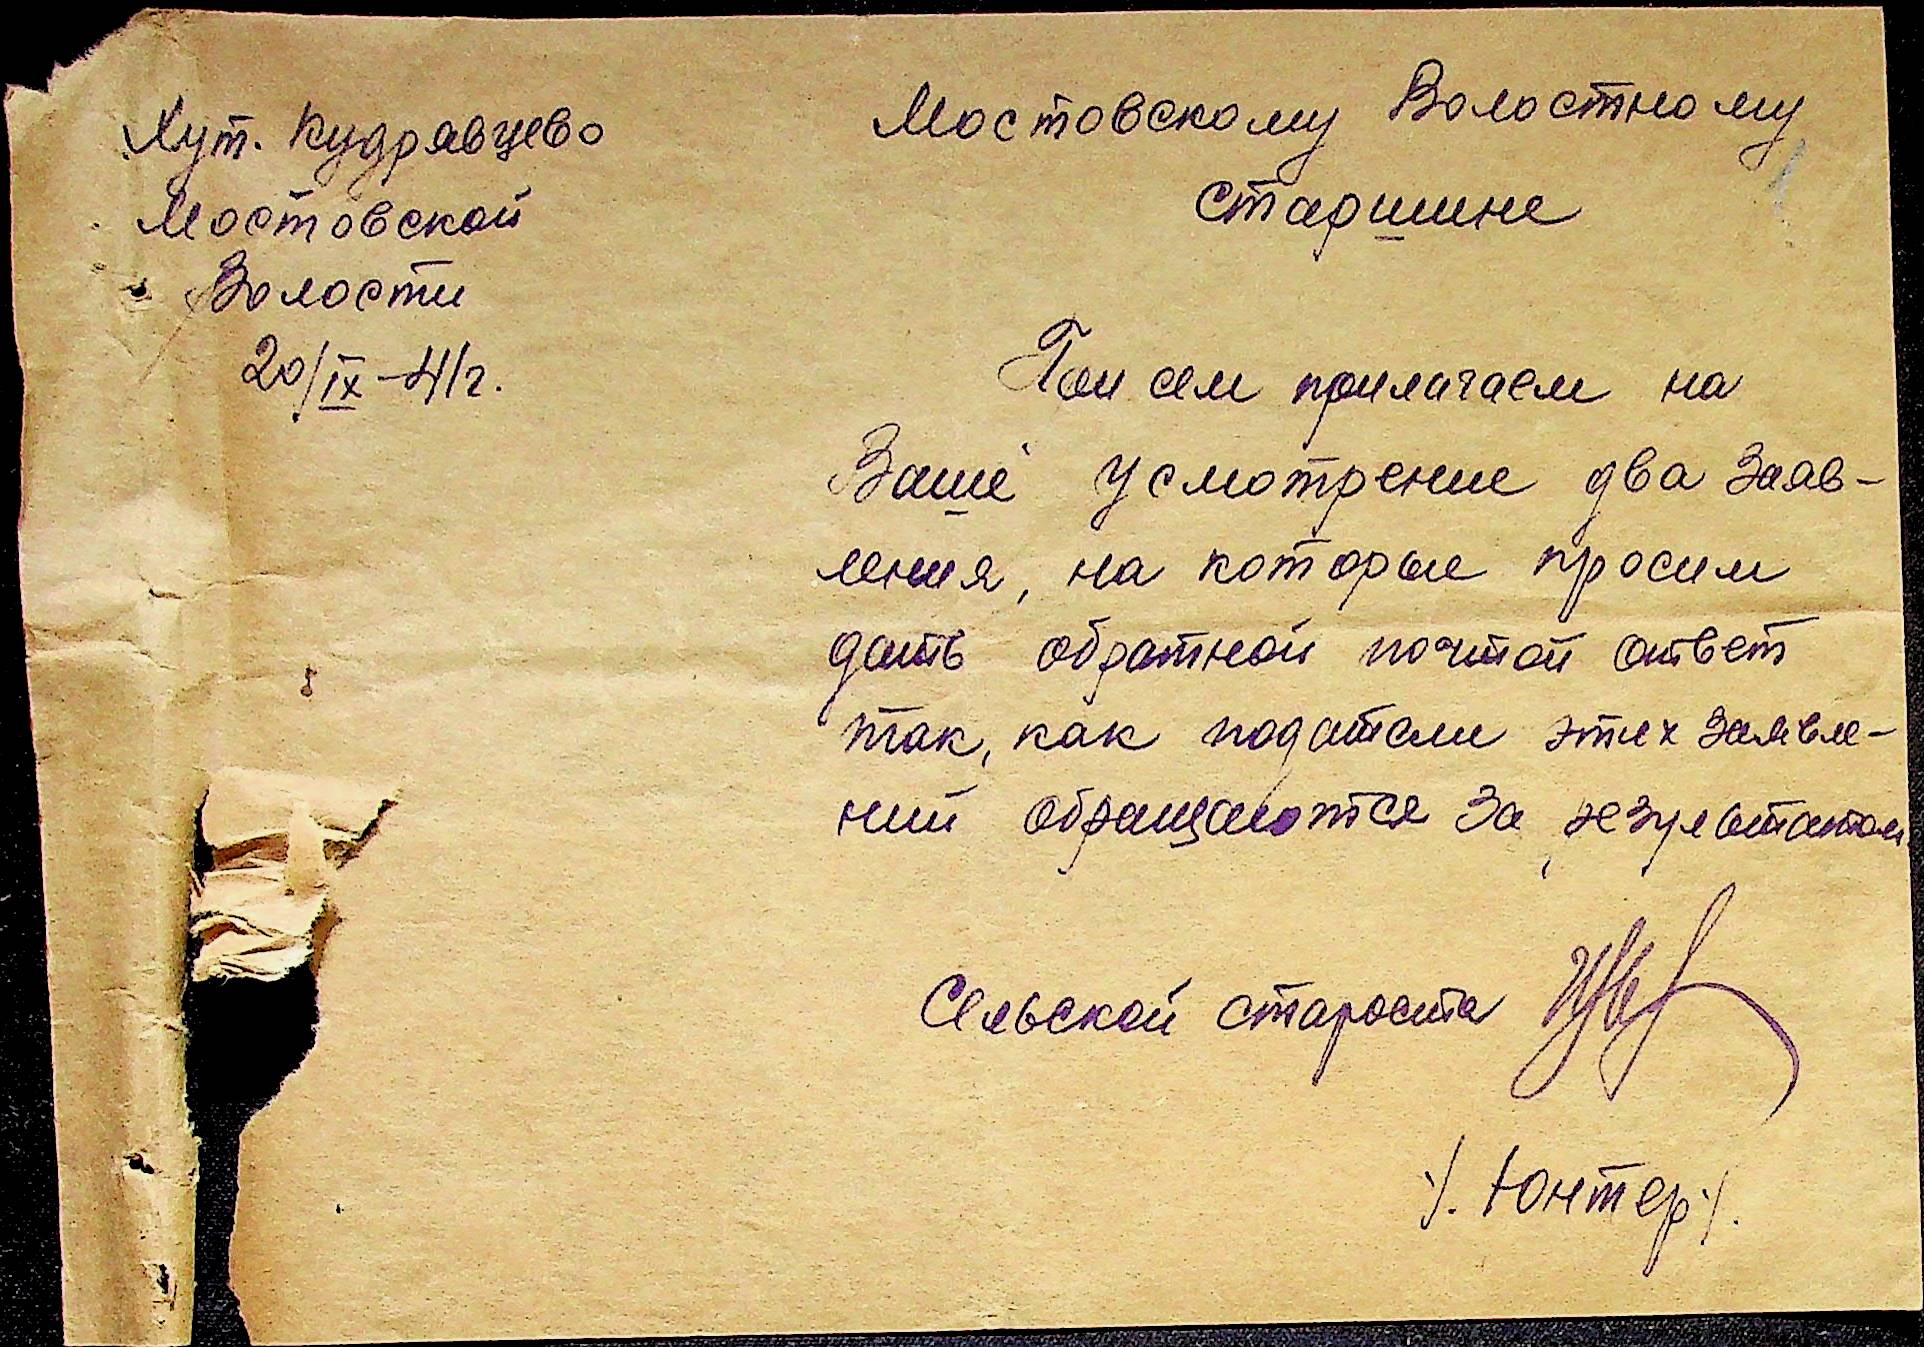 Хут. Кудрявцево
Мостовской
Волости
20/IX-41г.
Мостовскому Волостному
старшине
При сем прилагаем на
Ваше усмотрение два заяв-
ления, на которые просим
дать обратной почтой ответ
так, как податели этих заявле-
ний обращаются за результатом
Сельской староста
/. Юнтер /.